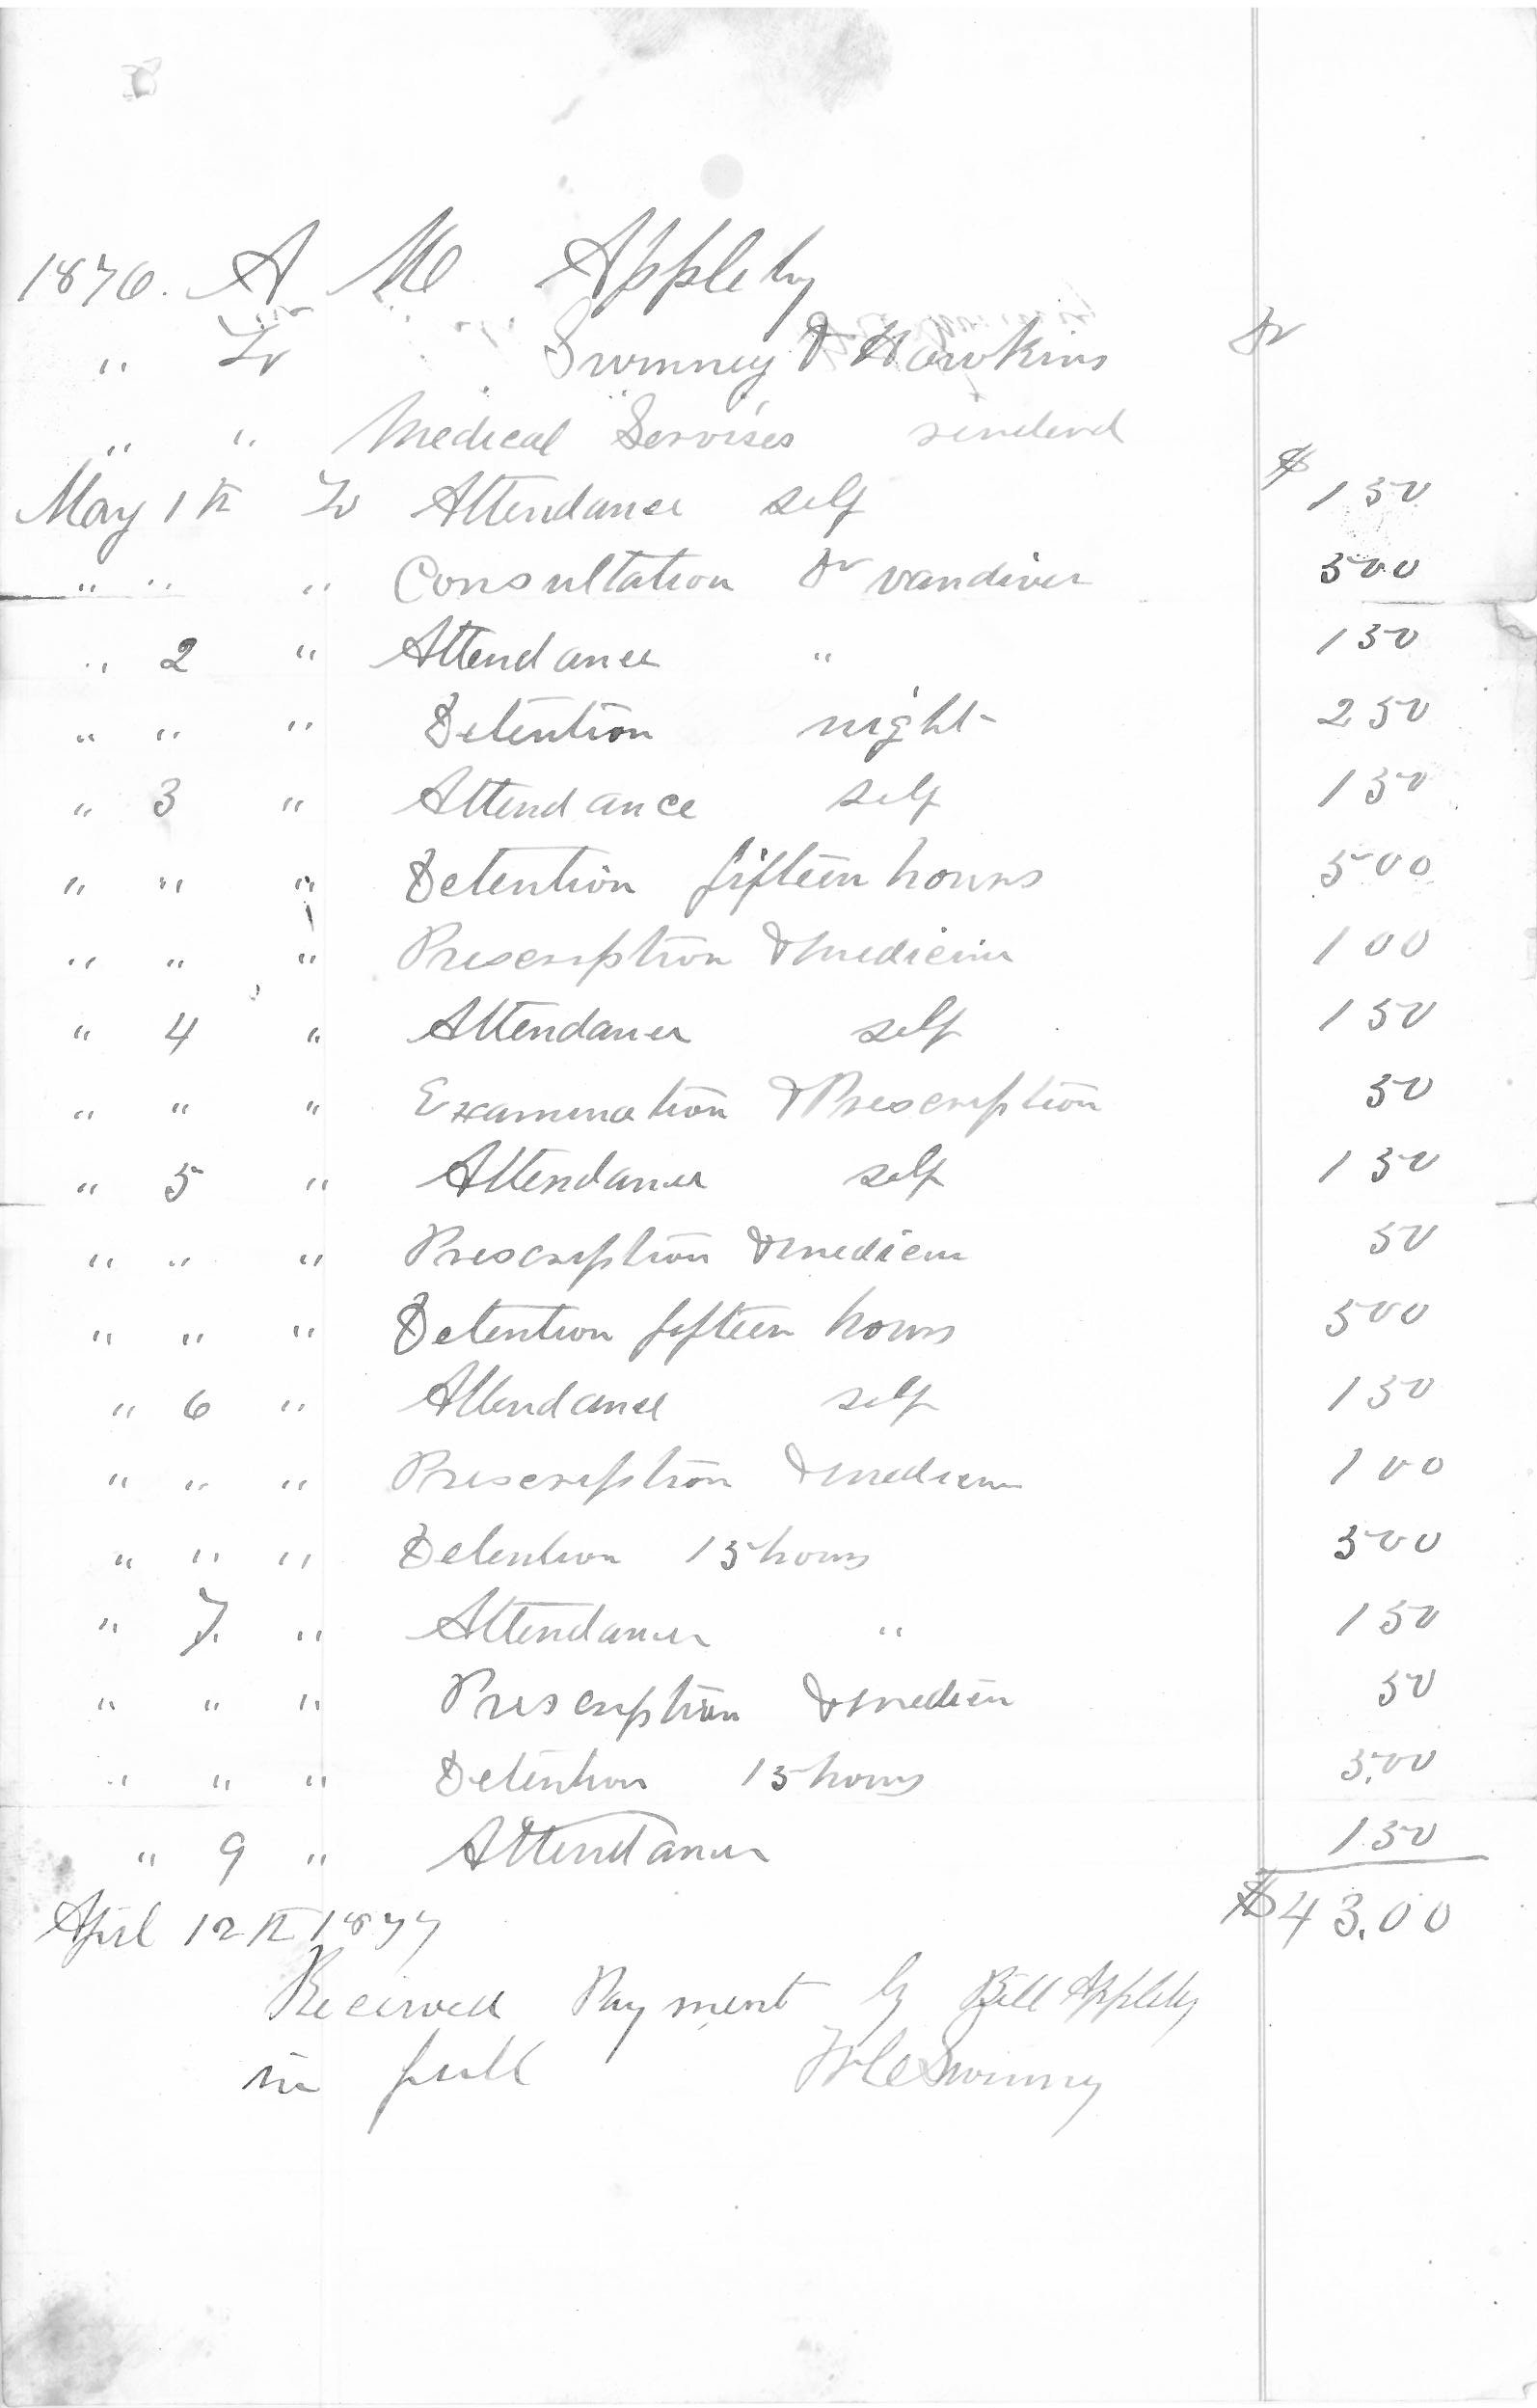 1876. A M Appleby
" To Swinney & Hawkins Dr
" " Medical Servises renderd
May 1th To Attendance self $ 150
" " " Consultation Dr vandiver 500
" 2 " Attendance " 150
" " " Detention night 250
" 3 " Attendance self 150
" " " Detention fifteen hours 500
" " " Prescription & medicine 100
" 4 " Attendance self 150
" " " Examination & Prescription 50
" 5 " Attendance self 150
" " " Prescription & medicin 50
" " " Detention fifteen hours 500
" 6 " Attendance self 150
" " " Prescription & medicin 100
" " " Detention 15 hours 500
" 7 " Attendance " 150
" " " Prescription & medicin 50
" " " Detention 15 hours 5.00
" 9 " Attendance 150
$43.00
April 12th 1877
Received Payment by Bill Appleby
in full Swinney